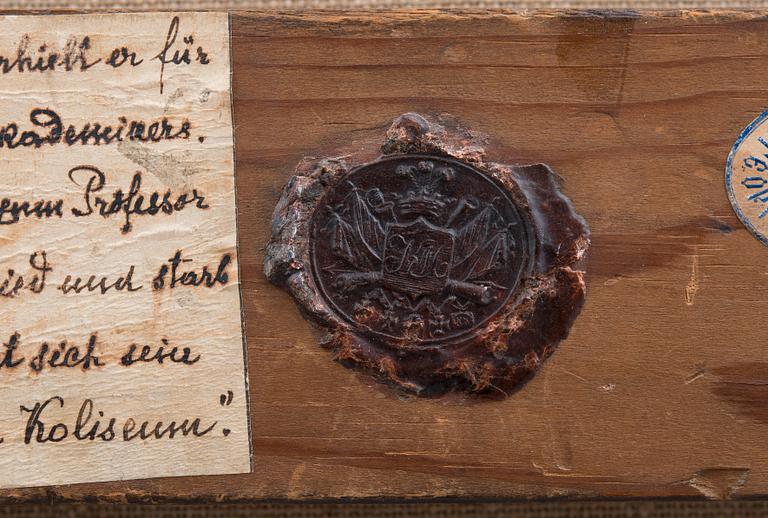 rhielt er für
kademikers.
zum Professor
ied und starb
t sich sein
Koliseum".